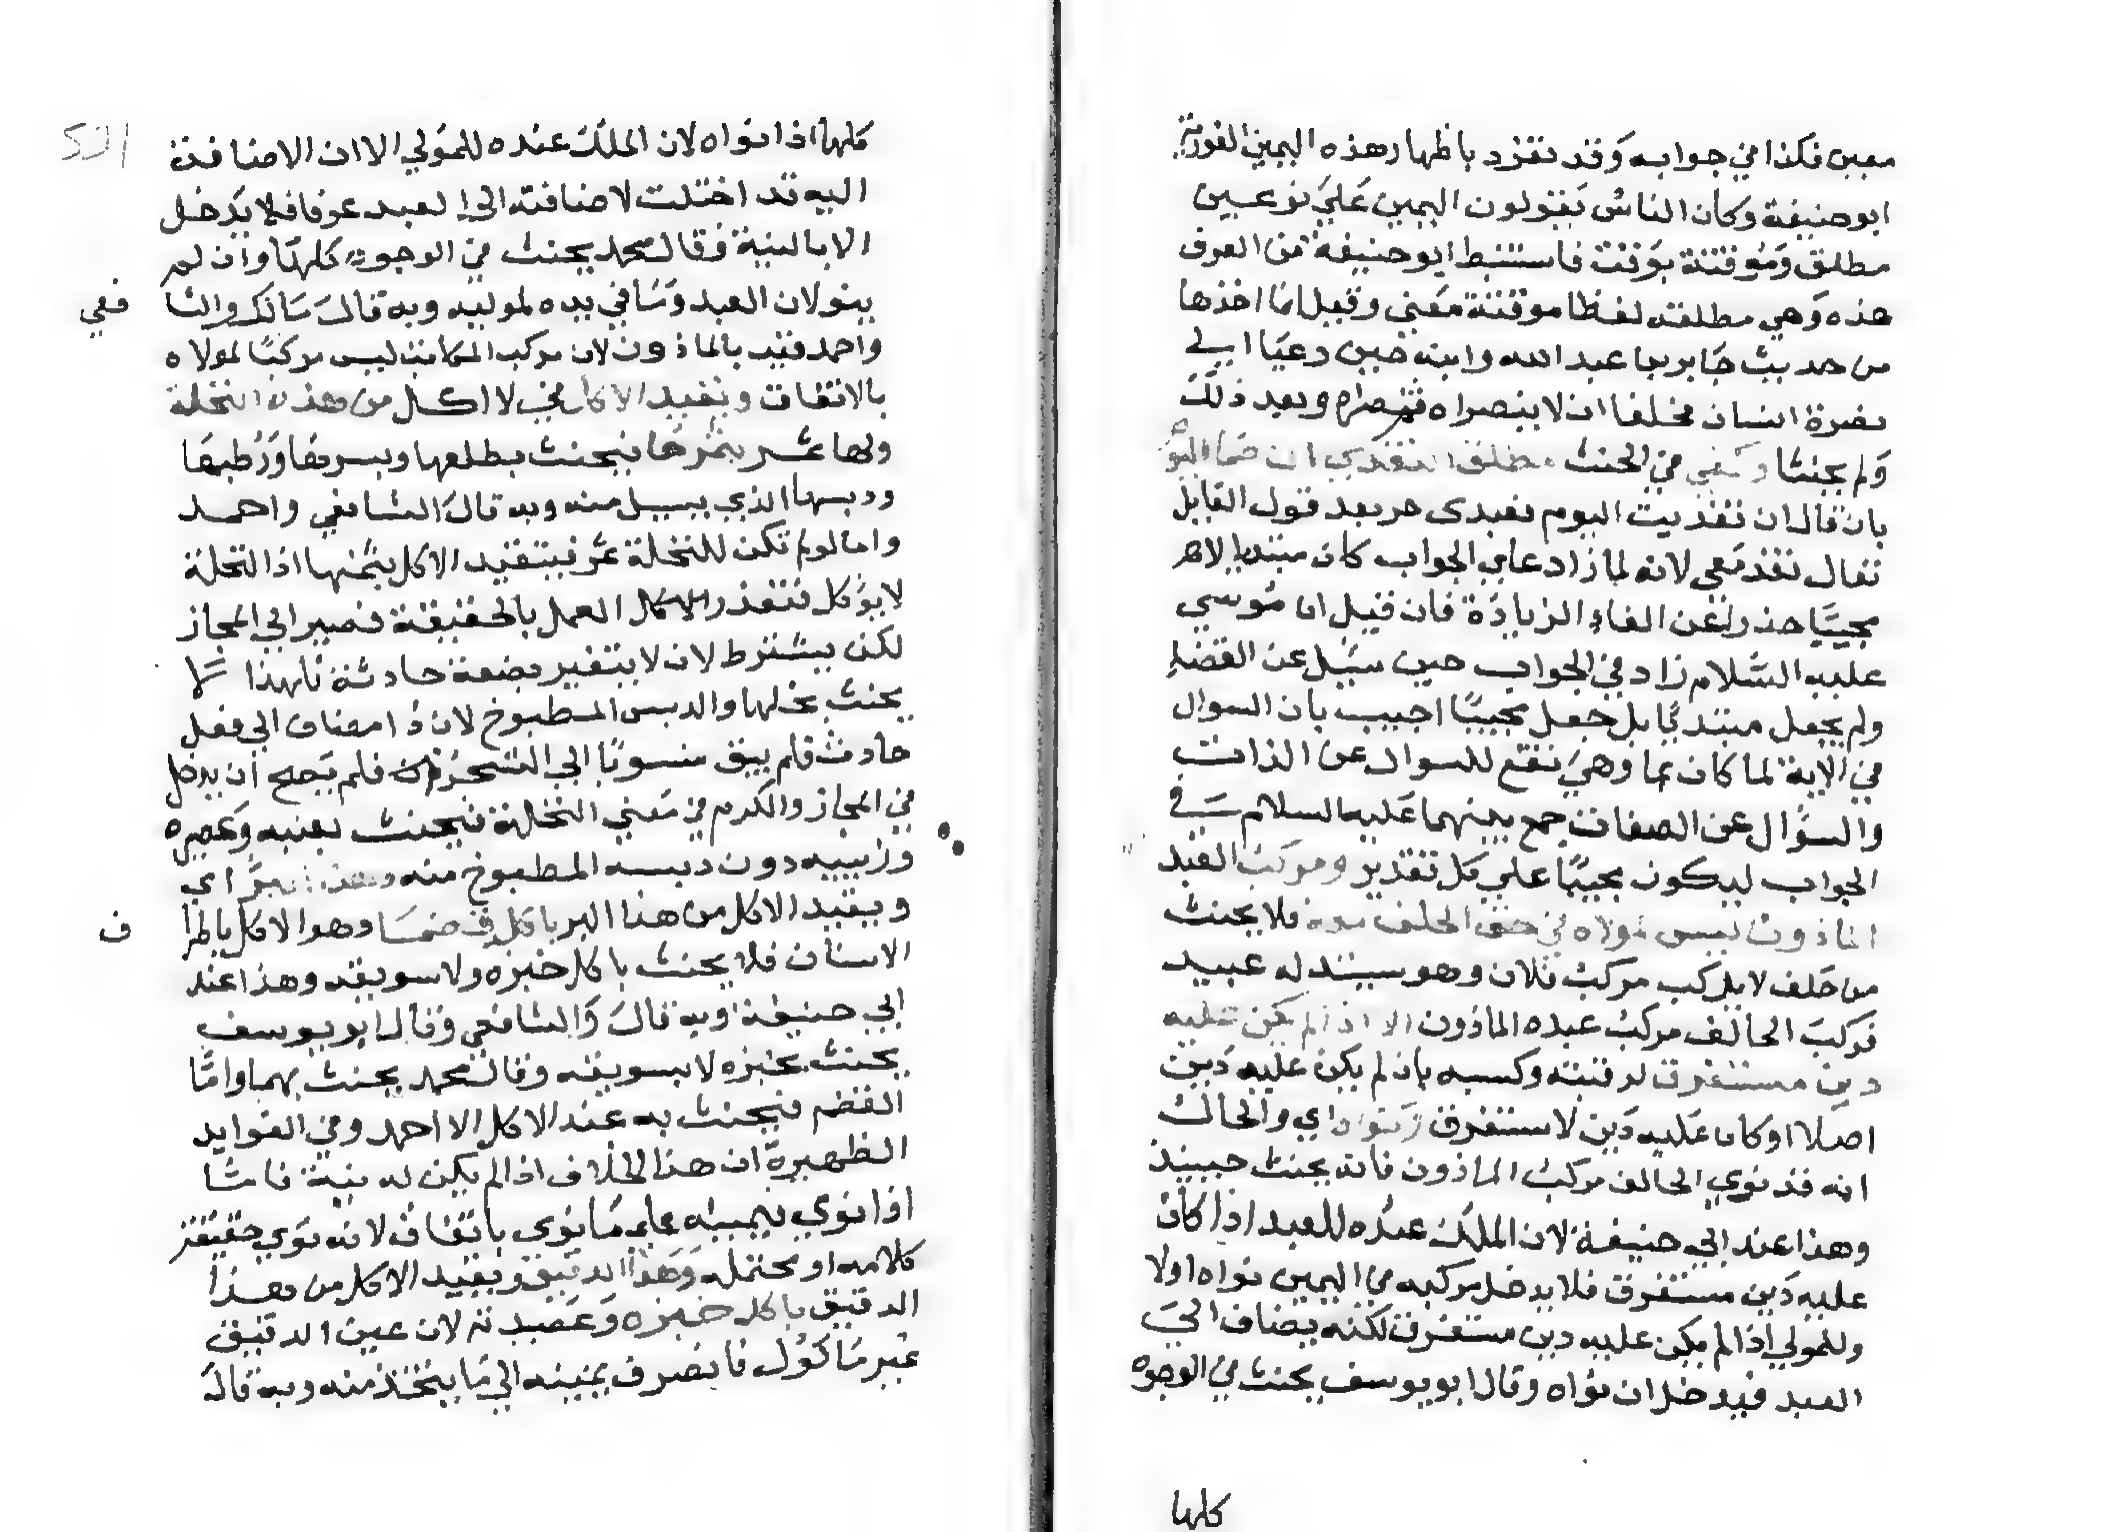 معين فكذا في جوابه وقد تفرد باظهار هذه اليمين الفورية
ابو حنيفة وكان الناس يقولون اليمين علي نوعين
مطلق وموقتة بوقت فاستنبط ابو حنيفة من العرف
هذه وهي مطلقة لفظا موقتة معني وقيل انما اخذها
من حديث جابر بن عبد الله وابنه حين دعيا الي
نصرة انسان فحلفا ان لا ينصراه ثم نصراه وبعد ذلك
ولم يحنثا وكفي في الحنث مطلق التغدي ان ضم اليوم
بان قال ان تغديت اليوم فعبدي حر بعد قول القايل
تعال تغد معي لانه لما زاد علي الجواب كان مبتديا لا
مجيبا حذرا عن الغاء الزيادة فان قيل ان موسي
عليه السلام زاد في الجواب حين سيل عن القضا
ولم يجعل مبتديا بل جعل مجيبا اجيب بان السوال
في الاية لما كان بما وهي تقع للسوال عن الذات
والسؤال عن الصفات جمع بينهما عليه السلام في
الجواب ليكون مجيبا علي كل تقدير ومركب العبد
الماذون ليس لمولاه في حق الحلف فلا يحنث
من حلف لا يركب مركب فلان وهو سيد له عبيد
فركب الحالف مركب عبده الماذون الا اذا لم يكن عليه
دين مستغرق لرقبته وكسبه بان لم يكن عليه دين
اصلا او كان عليه دين لا مستغرق ونواه اي والحال
انه قد نوي الحالف مركب الماذون فانه يحنث حينيذ
وهذا عند ابي حنيفة لان الملك عنده للعبد اذا كان
عليه دين مستغرق فلا يدخل مركبه في اليمين نواه او لا
وللمولي اذا لم يكن عليه دين مستغرق لكنه يضاف الي
العبد فيدخل ان نواه وقال ابو يوسف يحنث في الوجوه
كلها
كلها اذا نواه لان الملك عنده للمولي الا ان الاضافة
اليه قد اختلت لاضافته الي العبد عرفا فلا يدخل
الا بالنية وقال محمد يحنث في الوجوه كلها وان لم
ينو لان العبد وما في يده لموليه وبه قال مالك والشا
فعي
واحمد قيد بالماذون لان مركب المكاتب ليس مركبا لمولاه
بالاتفاق وتقيد الاكل في لا اكل من هذه النخلة
ولها ثمر بثمرها فيحنث بطلعها وبسرها ورطبها
ودبسها الذي يسيل منه وبه قال الشافعي واحمد
واما لو لم تكن للنخلة ثمر فيتقيد الاكل بثمنها اذ النخلة
لا يؤكل فتعذر العمل بالحقيقة فصير الي المجاز
لكن يشترط لان لا يتغير بصنعة حادثة فلهذا لا
يحنث بخلها والدبس المطبوخ لان ذا مضاف الي فعل
حادث فلم يبق منسوبا الي الشجر فلم يصح ان يدخل
في المجاز والكرم في معني النخلة فيحنث بعنبه وعصيره
وزبيبه دون دبسه المطبوخ منه وهذا البر اي
ويقيد الاكل من هذا البر باكله قضما وهو الاكل باطرا
ف
الاسنان فلا يحنث باكل خبزه ولا سويقه وهذا عند
ابي حنيفة وبه قال والشافعي وقال ابو يوسف
يحنث بخبزه لا بسويقه وقال محمد يحنث بهما واما
القضم فيحنث به عند الاكل الا احمد وفي الفوايد
الظهيرة ان هذا الخلاف اذا لم يكن له نية فاما
اذا نوي فيمينه علي ما نوي باتفاق لانه نوي حقيقة
كلامه او محتمله وهذا الدقيق ويقيد الاكل من هذا
الدقيق باكل خبزه وعصيدته لان عين الدقيق
غير ماكول فانصرف يمينه الي ما يتخذ منه وبه قال